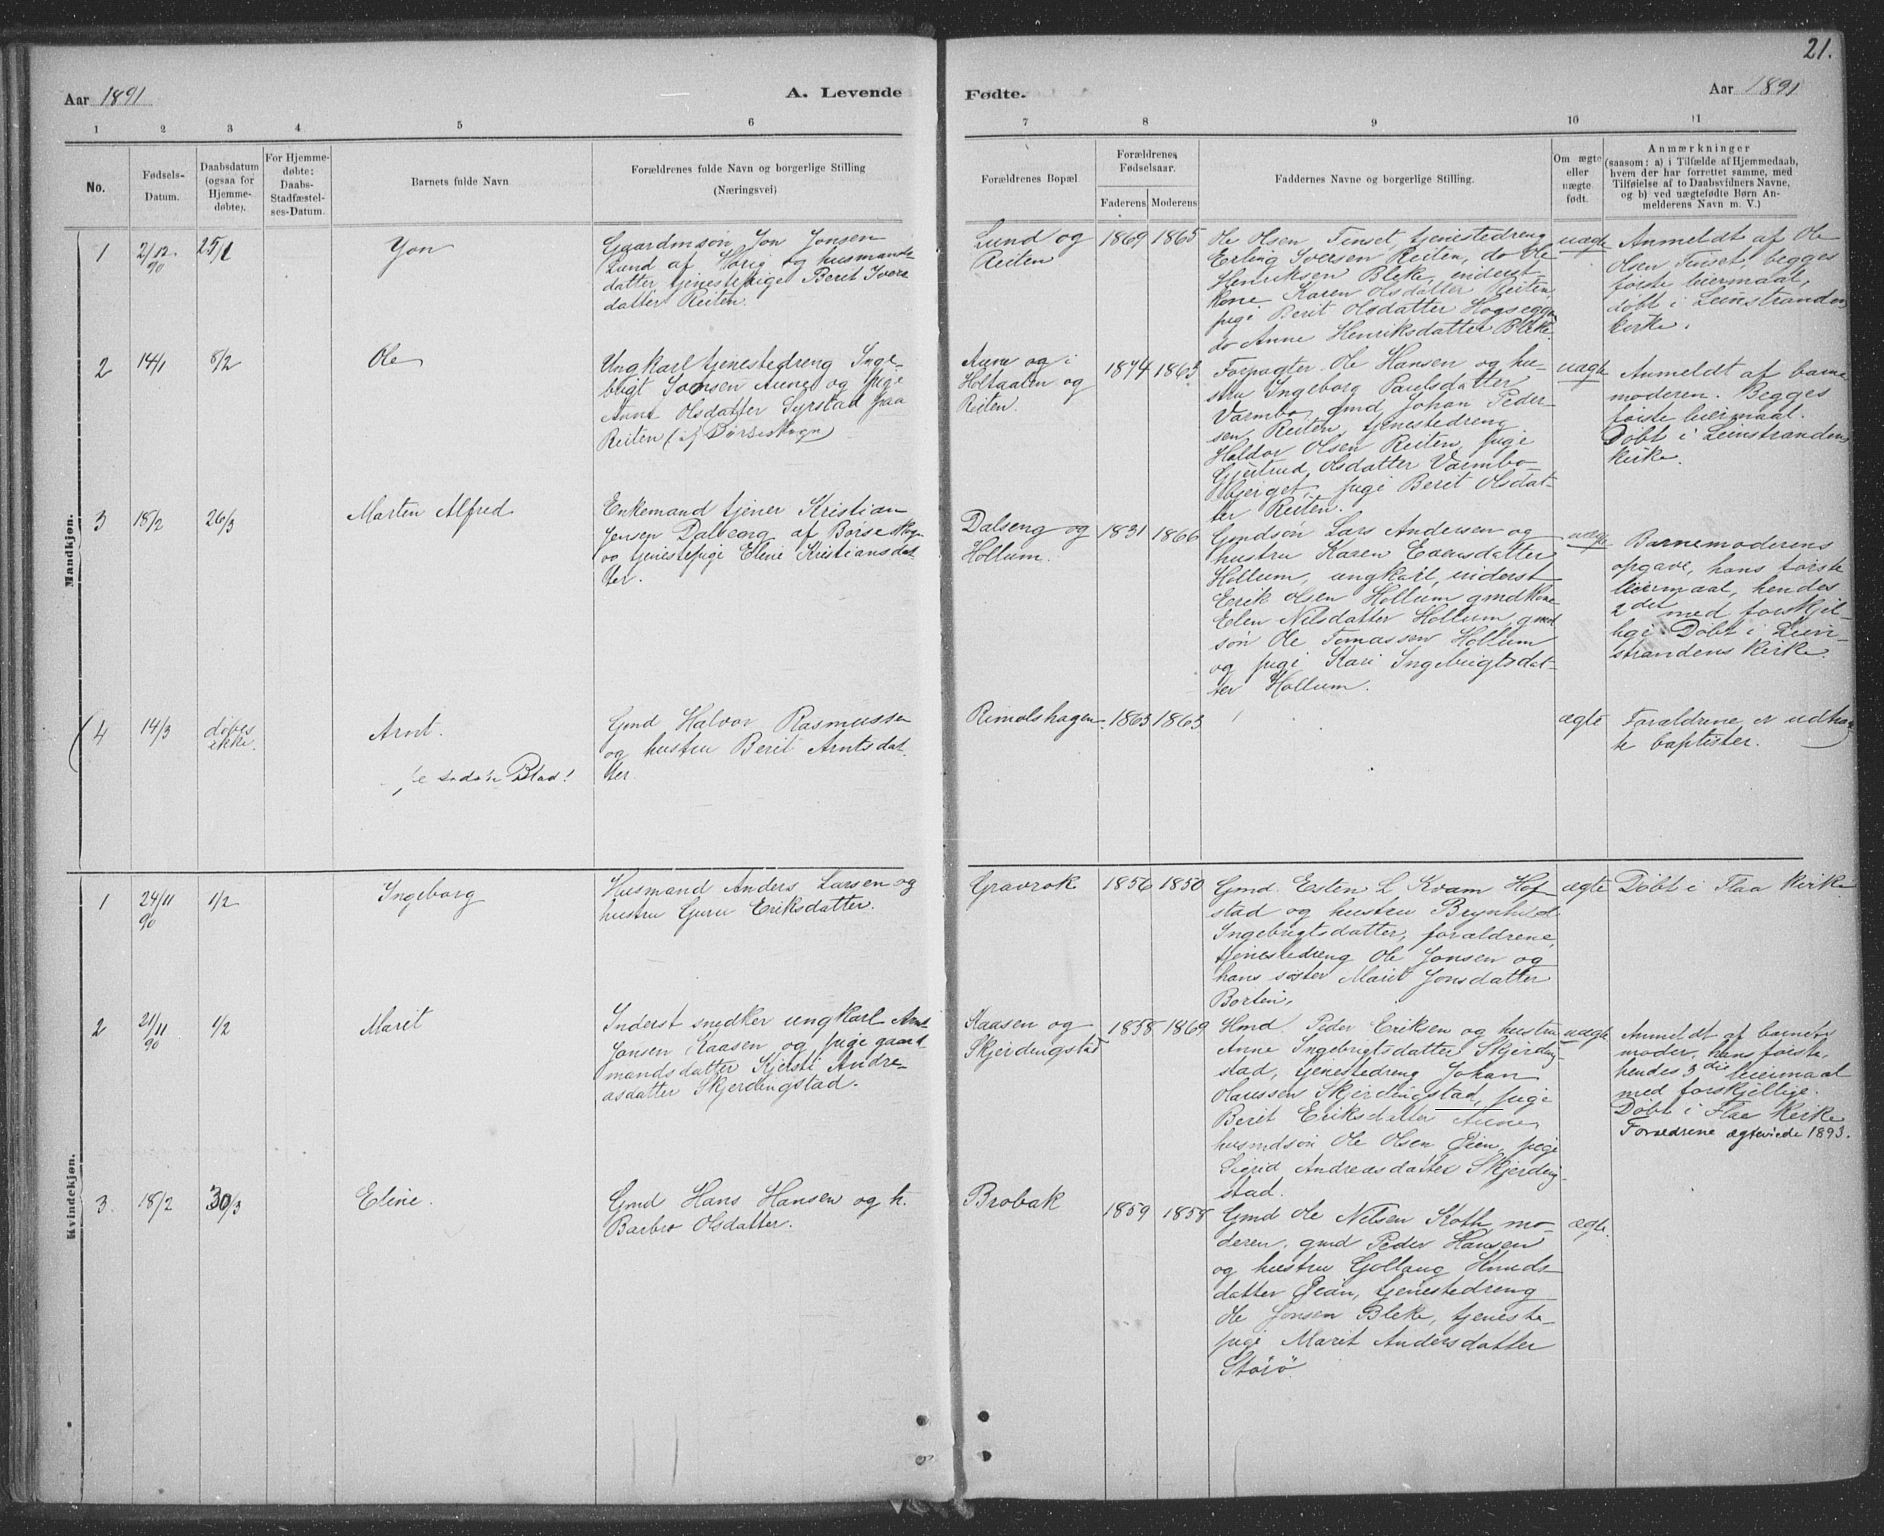 21.
Aar 1891
A. Levende
Fødte.
Aar 1891
1 2 3 4 5 6 7 8 9 10 11
No.
Fødsels-
Datum.
Daabsdatum
(ogsaa for
Hjemme-
døbte).
For Hjemme-
døbte:
Daabs-
Stadfæstel-
ses-Datum.
Barnets fulde Navn
Forældrenes fulde Navn og borgerlige Stilling
(Næringsvei)
Forældrenes Bopæl
Forældrenes
Fødselsaar.
Faderens Moderens
Faddernes Navne og borgerlige Stilling.
Om ægte
eller
uægte
født.
Anmærkninger
(saasom: a) i Tilfælde af Hjemmedaab,
hvem der har forrettet samme, med
Tilføielse af to Daabsvidners Navne,
og b) ved uægtefødte Børn An-
melderens Navn m. V.)
Mandkjøn.
1
2/12
90
25/1
Jon
Gaardmsøn Jon Jonsen
Lund af og husmands
datter tjenestepige Berit Ivers
datter Reiten.
Lund og
Reiten
1869 1865
Ole Olsen Tenset, tjenestedreng
Erling Iversen Reiten, do Ole
Henriksen Bleke, inderst
kone Karen Olsdatter Reiten,
pige Berit Olsdatter Hogseggen
do Anne Henriksdatter Bleke.
uægte
Anmeldt af Ole
Olsen Tenset, begges
første leiermaal,
døbt i Leinstrandens
kirke.
2
14/1
8/2
Ole
Ungkarl tjenestedreng Inge-
brigt Aune og pige
Anne Olsdatter Syrstad paa
Reiten (af Børseskogn)
Aune og i
Holtaalen og
Reiten.
1874 1863
Forpagter Ole Hansen og hu-
stru Ingeborg Paulsdatter
Varmbo, gmd Johan Peder-
sen Reiten, tjenestedreng
Haldor Olsen Reiten, pige
Gjertrud Olsdatter Varmbo-
bjerget, pige Berit Olsdat-
ter Reiten.
uægte
Anmeldt af barne
moderen. Begges
første leiermaal.
Døbt i Leinstrandens
kirke.
3
15/2
26/3
Marten Alfred
Enkemand tjener Kristian
Jensen Dalberg af Børseskogn
og tjenestepige Elene Kristiansdat-
ter.
Dalseng og
Hollum.
1831 1866
Gmdsøn Lars Andersen og
hustru Karen
Hollum, ungkarl, inderst
Erik Olsen Hollum gmdkone
Elen Nilsdatter Hollum, gmd
søn Ole Tomassen Hollum
og pige Kari Ingebrigtsdat-
ter Hollum.
uægte
Barnemoderens
opgave, hans første
leiermaal, hendes
2det med forskjel-
lige. Døbt i Lein-
strandens kirke.
4
14/3
døbes
ikke.
Arnt.
se sidste Blad!
Gmd Halvor Rasmussen
og hustru Berit Arntsdat-
ter.
Rimolshagen.
1863 1863
ægte
Forældrene er udtraad-
te baptister.
Kvindekjøn.
1
24/11
90
1/2
Ingeborg
Husmand Anders Larsen og
hustru Guru Eriksdatter.
Gravrok
1856 1850
Gmd. Esten L Kvam Hof
stad og hustru Brynhild
Ingebrigtsdatter, forældrene,
tjenestedreng Ole Jonsen og
hans søster Marit Jonsdatter
Borten.
ægte
Døbt i Flaa Kirke
2
21/11
90
1/2
Marit
Inderst snedker ungkarl Arnt
Jonsen Kaasen og pige gaard
mandsdatter Kjersti Andre-
asdatter Skjerdingstad.
Kaasen og
Skjerdingstad
1858 1869
Hmd. Peder Eriksen og hustru
Anne Ingebrigtsdatter Skjerding
stad, tjenestedreng Johan
Olaussen Skjerdingstad, pige
Berit Eriksdatter Aune,
husmdsøn Ole Olsen Øien, pige
Sigrid Andreasdatter Skjerding
stad.
uægte
Anmeldt af barnets
moder, hans første,
hendes 3die leiermaal
med forskjellige.
Døbt i Flaa Kirke
Forældrene ægteviede 1893.
3.
18/2
30/3
Eline.
Gmd Hans Hansen og h.
Barbro Olsdatter.
Brobak
1859 1858
Gmd Ole Nilsen Koth, mo-
deren, gmd Peder Hansen
og hustru Gollaug Knuds-
datter Øian, tjenestedreng
Ole Jonsen Bleke, tjeneste-
pige Marit Andersdatter
Storø.
ægte.